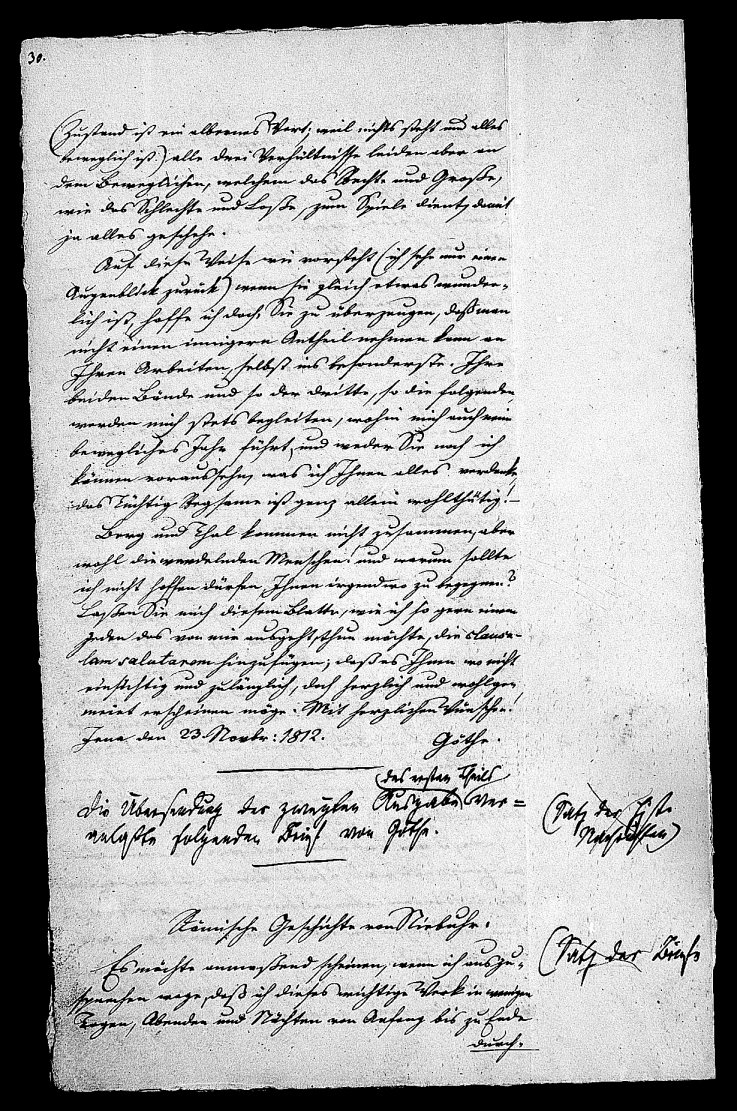 30.
(Zustand ist ein albernes Wort; weil nichts steht und alles
beweglich ist) alle drei Verhältnisse leiden aber an
dem Beweglichen, welchem das Rechte und Große,
wie das Schlechte und Loße, zum Spiele dient, damit
ja alles geschehe.
Auf diese Weise wie vorsteht (ich sehe nur einen
Augenblick zurück) wenn sie gleich etwas wunder-
lich ist, hoffe ich doch Sie zu überzeugen, daß man
nicht einen innigern Antheil nehmen kann an
Ihren Arbeiten, selbst ins besonderste. Ihre
beiden Bände und so der dritte, so die folgenden
werden mich stets begleiten, wohin mich auch ein
bewegliches Jahr führt, und weder Sie noch ich
können voraussehn, was ich Ihnen alles verdanke,
das Tüchtig Regsame ist ganz allein wohlthätig!—
Berg und Thal kommen nicht zusammen, aber
wohl die wandelnden Menschen! und warum sollte
ich nicht hoffen dürfen, Ihnen irgendwo zu begegnen?
Laßen Sie mich diesem Blatte, wie ich so gern einem
jeden das von mir ausgeht, thun möchte, die clausu-
lam salutarem hinzufügen; daß es Ihnen wo nicht
einsichtig und zulänglich, doch herzlich und wohlge-
meint erscheinen möge. Mit herzlichen Wünschen!
Jena, den 23. Novbr: 1812. Göthe.
des ersten Theils
Die Übersendung der zweyten Ausgabe ver=
anlaßte folgenden Brief von Göthe.
(Satz der
Römische Geschichte von Niebuhr.
(Satz der Briefe
Es möchte anmaßend scheinen, wenn ich auszu-
sprechen wage, daß ich dieses wichtige Werk in wenigen
Tagen, Abenden und Nächten von Anfang bis zu Ende
durch-